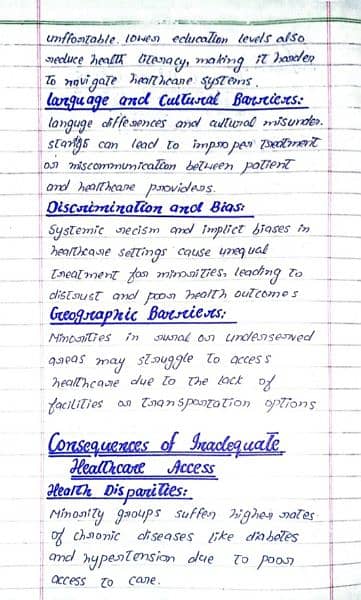 unffortable. lower education levels also
reduce health literacy, making it harder
to navigate healthcare systems.
Language and Cultural Barriers:
languge differences and cultural misunder-
stangs can lead to improper treatment
or miscommunication between patient
and healthcare providers.
Discrimination and Bias:
Systemic recism and implict biases in
healthcare settings cause unequal
treatment for minorities, leading to
distrust and poor health outcomes
Geographic Barriers:
Minorities in rural or underserved
areas may struggle to access
healthcare due to the lack of
facilities or transportation options
Consequences of Inadequate
Healthcare Access
Health Disparities:
Minority groups suffer higher rates
of chronic diseases like diabetes
and hypertension due to poor
access to care.